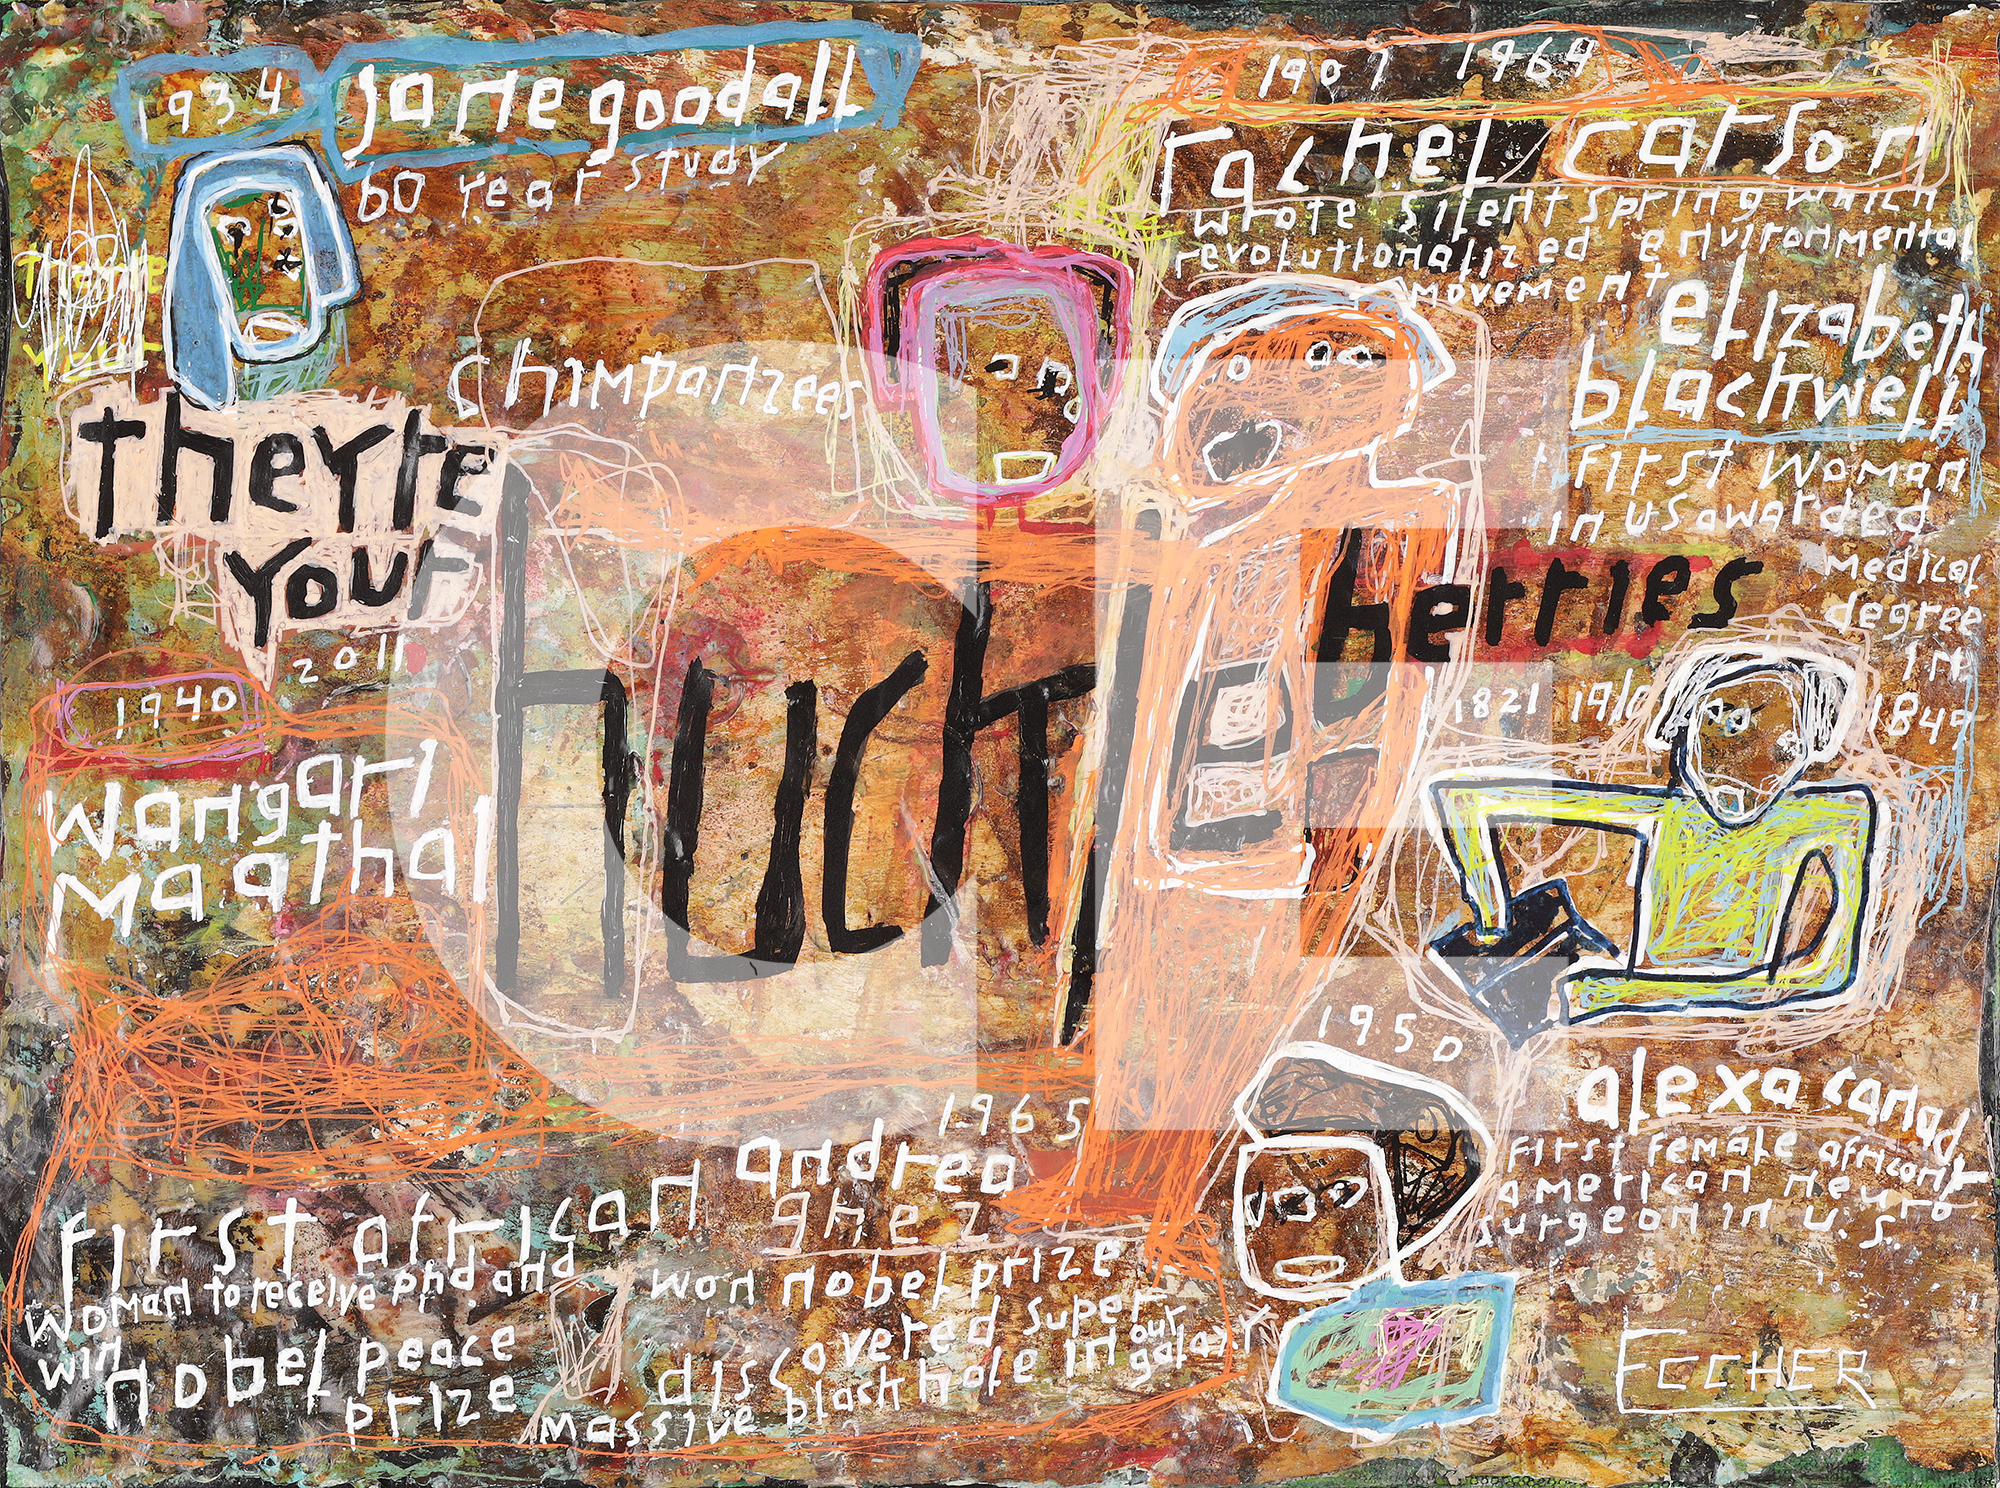 1934
jane goodall
60 year study
chimpanzees
1907 1964
rachel carson
wrote silent spring which
revolutionalized environmental
movement
elizabeth
blackwell
first woman
in us awarded
medical
degree
in
1849
1821 1910
they're
your
huckle
berries
2011
1940
wangari
maathai
first african
woman to receive phd and
win
nobel peace
prize
1965
andrea
ghez
won nobel prize
discovered super
massive black hole in our
galaxy
1950
alexa canady
first female african
american neuro
surgeon in u.s.
ECCHER
dE